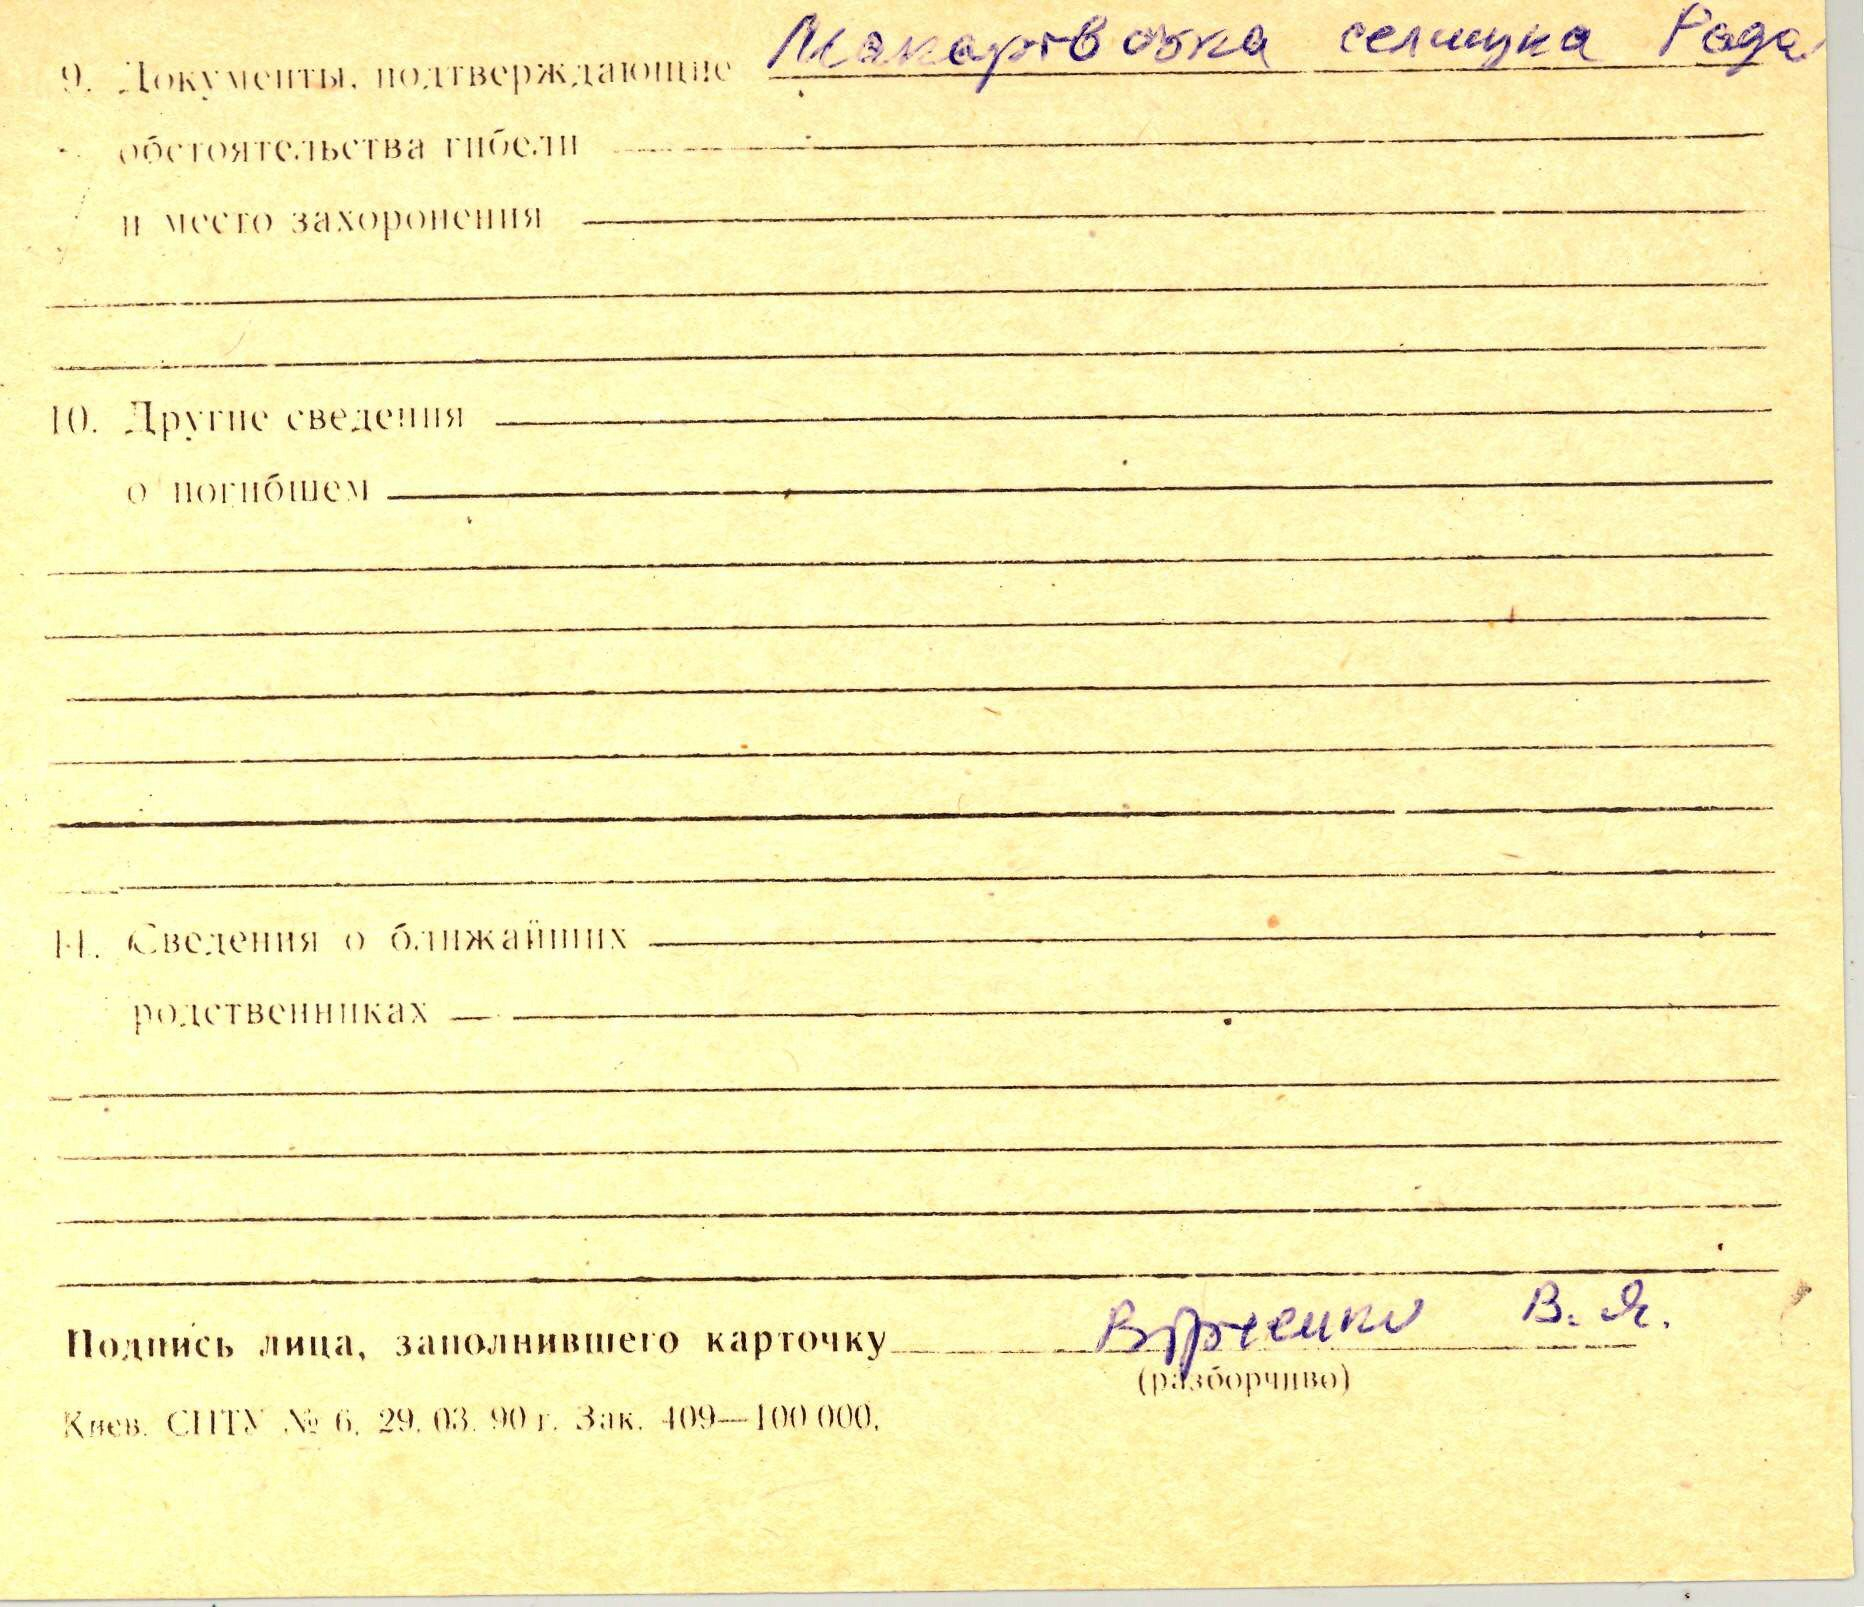 Макарівська селищна Рада
9. Документы, подтверждающие
обстоятельства гибели
и место захоронения
10. Другие сведения
о погибшем
11. Сведения о ближайших
родственниках
Подпись лица, заполнившего карточку В. Я.
(разборчиво)
Киев. СПТУ № 6. 29. 03. 90 г. Зак. 409—100 000.